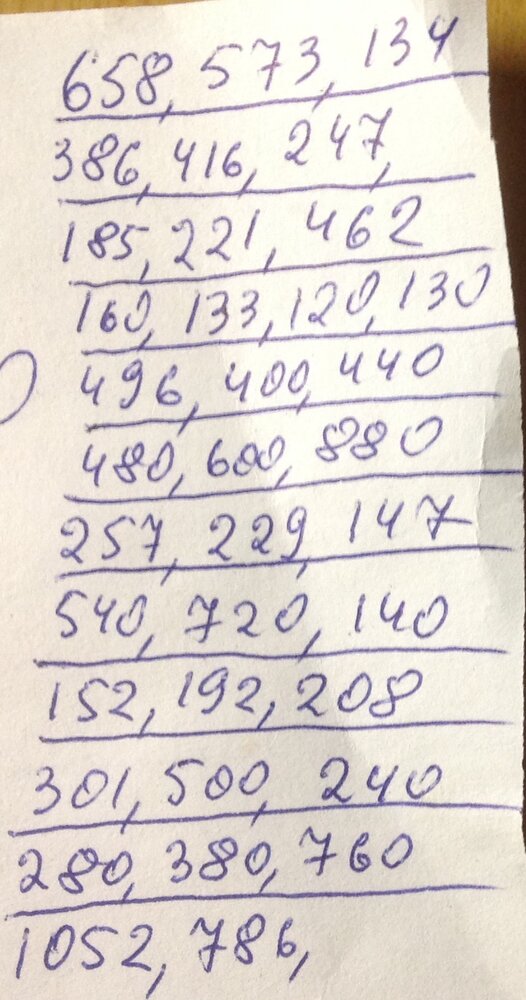 658, 573, 134
386, 416, 247,
185, 221, 462
160, 133, 120, 130
496, 400, 440
480, 600, 880
257, 229, 147
540, 720, 140
152, 192, 208
301, 500, 240
280, 380, 760
1052, 786,